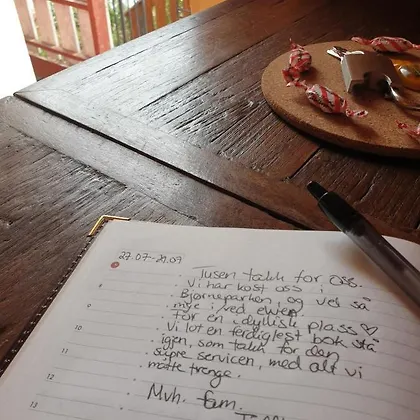 27.07-29.07
Tusen takk for oss.
Vi har kost oss i
Bjørneparken, og vel så
mye ved elven.
for en idyllisk plass ♡
Vi lot en ferdiglest bok stå
igjen, som takk for den
supre servicen, med alt vi
måtte trenge.
Mvh. fam.
8
9
10
11
12
13